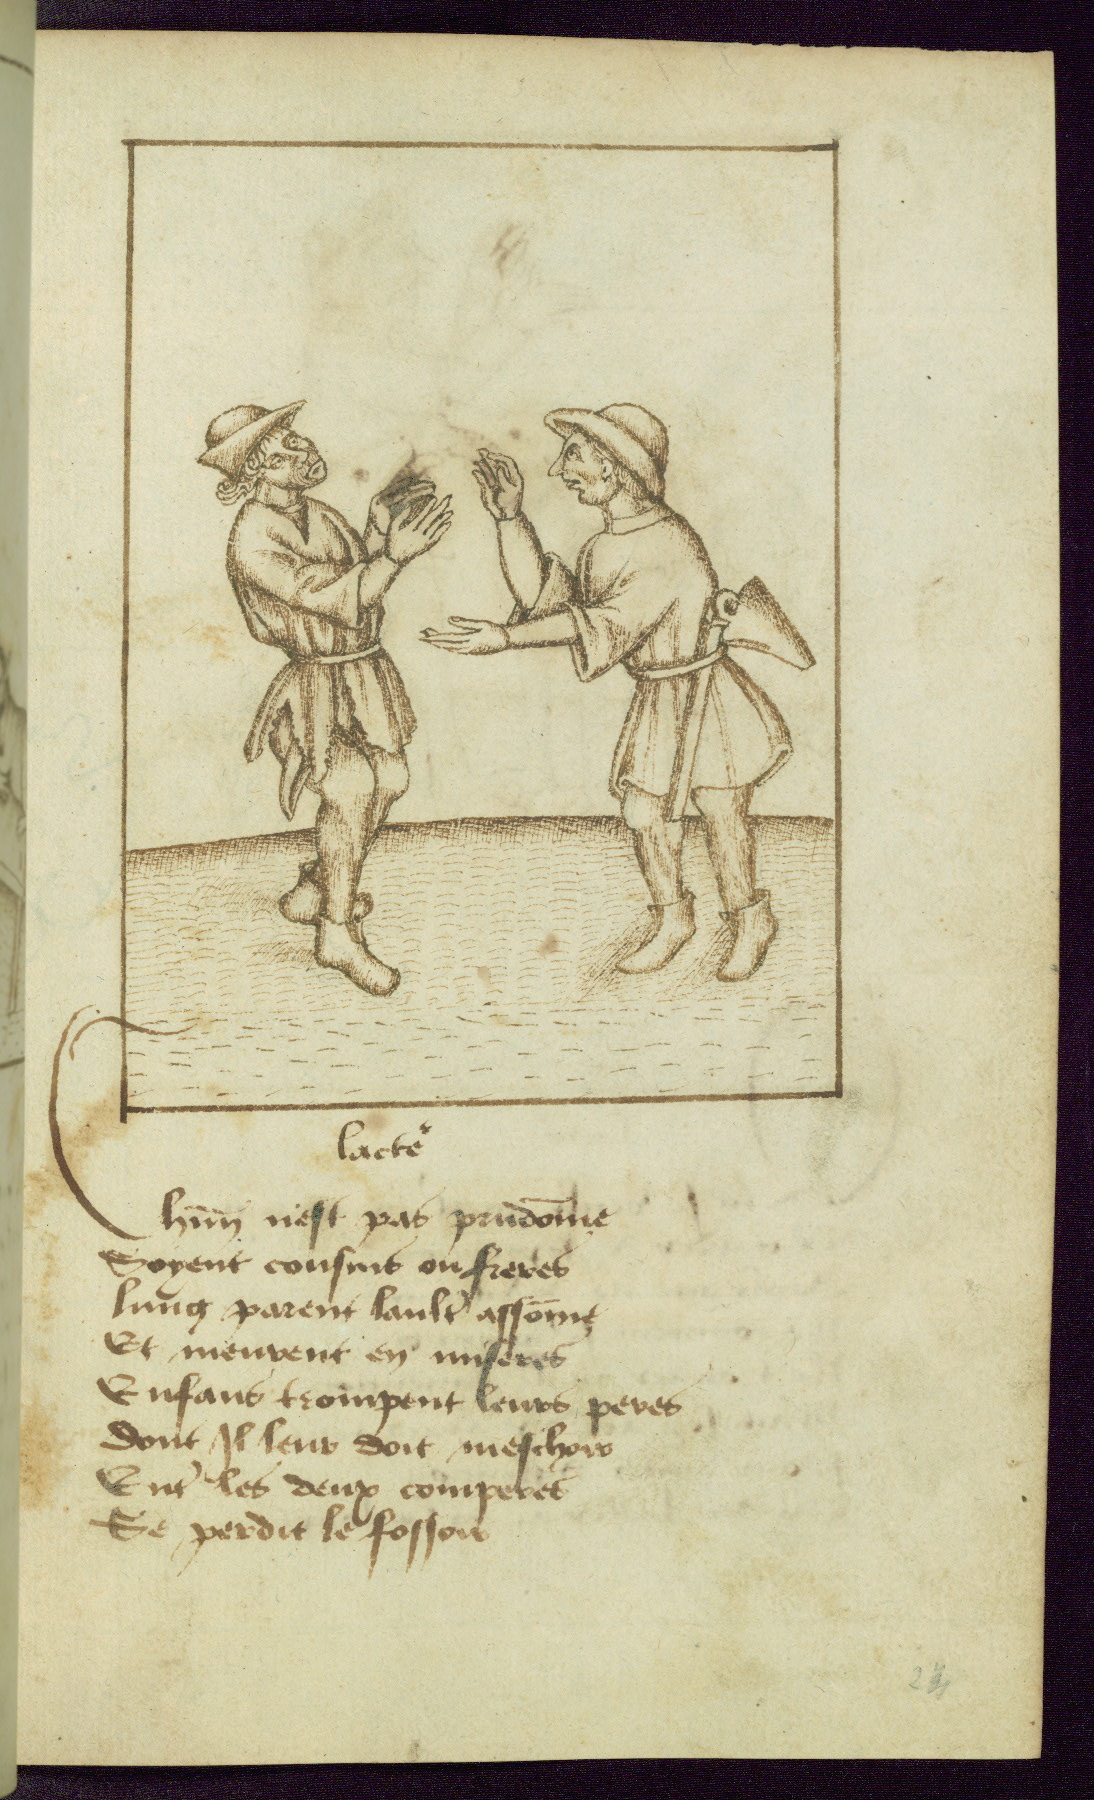 lacter
Chūn nest pas prudom̄e
Soyent cousins ou freres
lung parent laultr assom̄e
Et meurent en miseres
Enfans trompent leurs peres
dont Il leur doit meschoir
Entr les deux comperes
Se perdit le fossoir